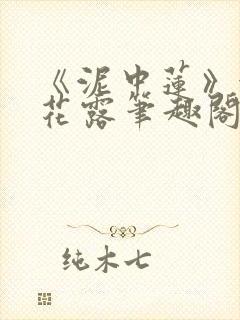 《泥中莲》
花露笔趣阁
纯木七